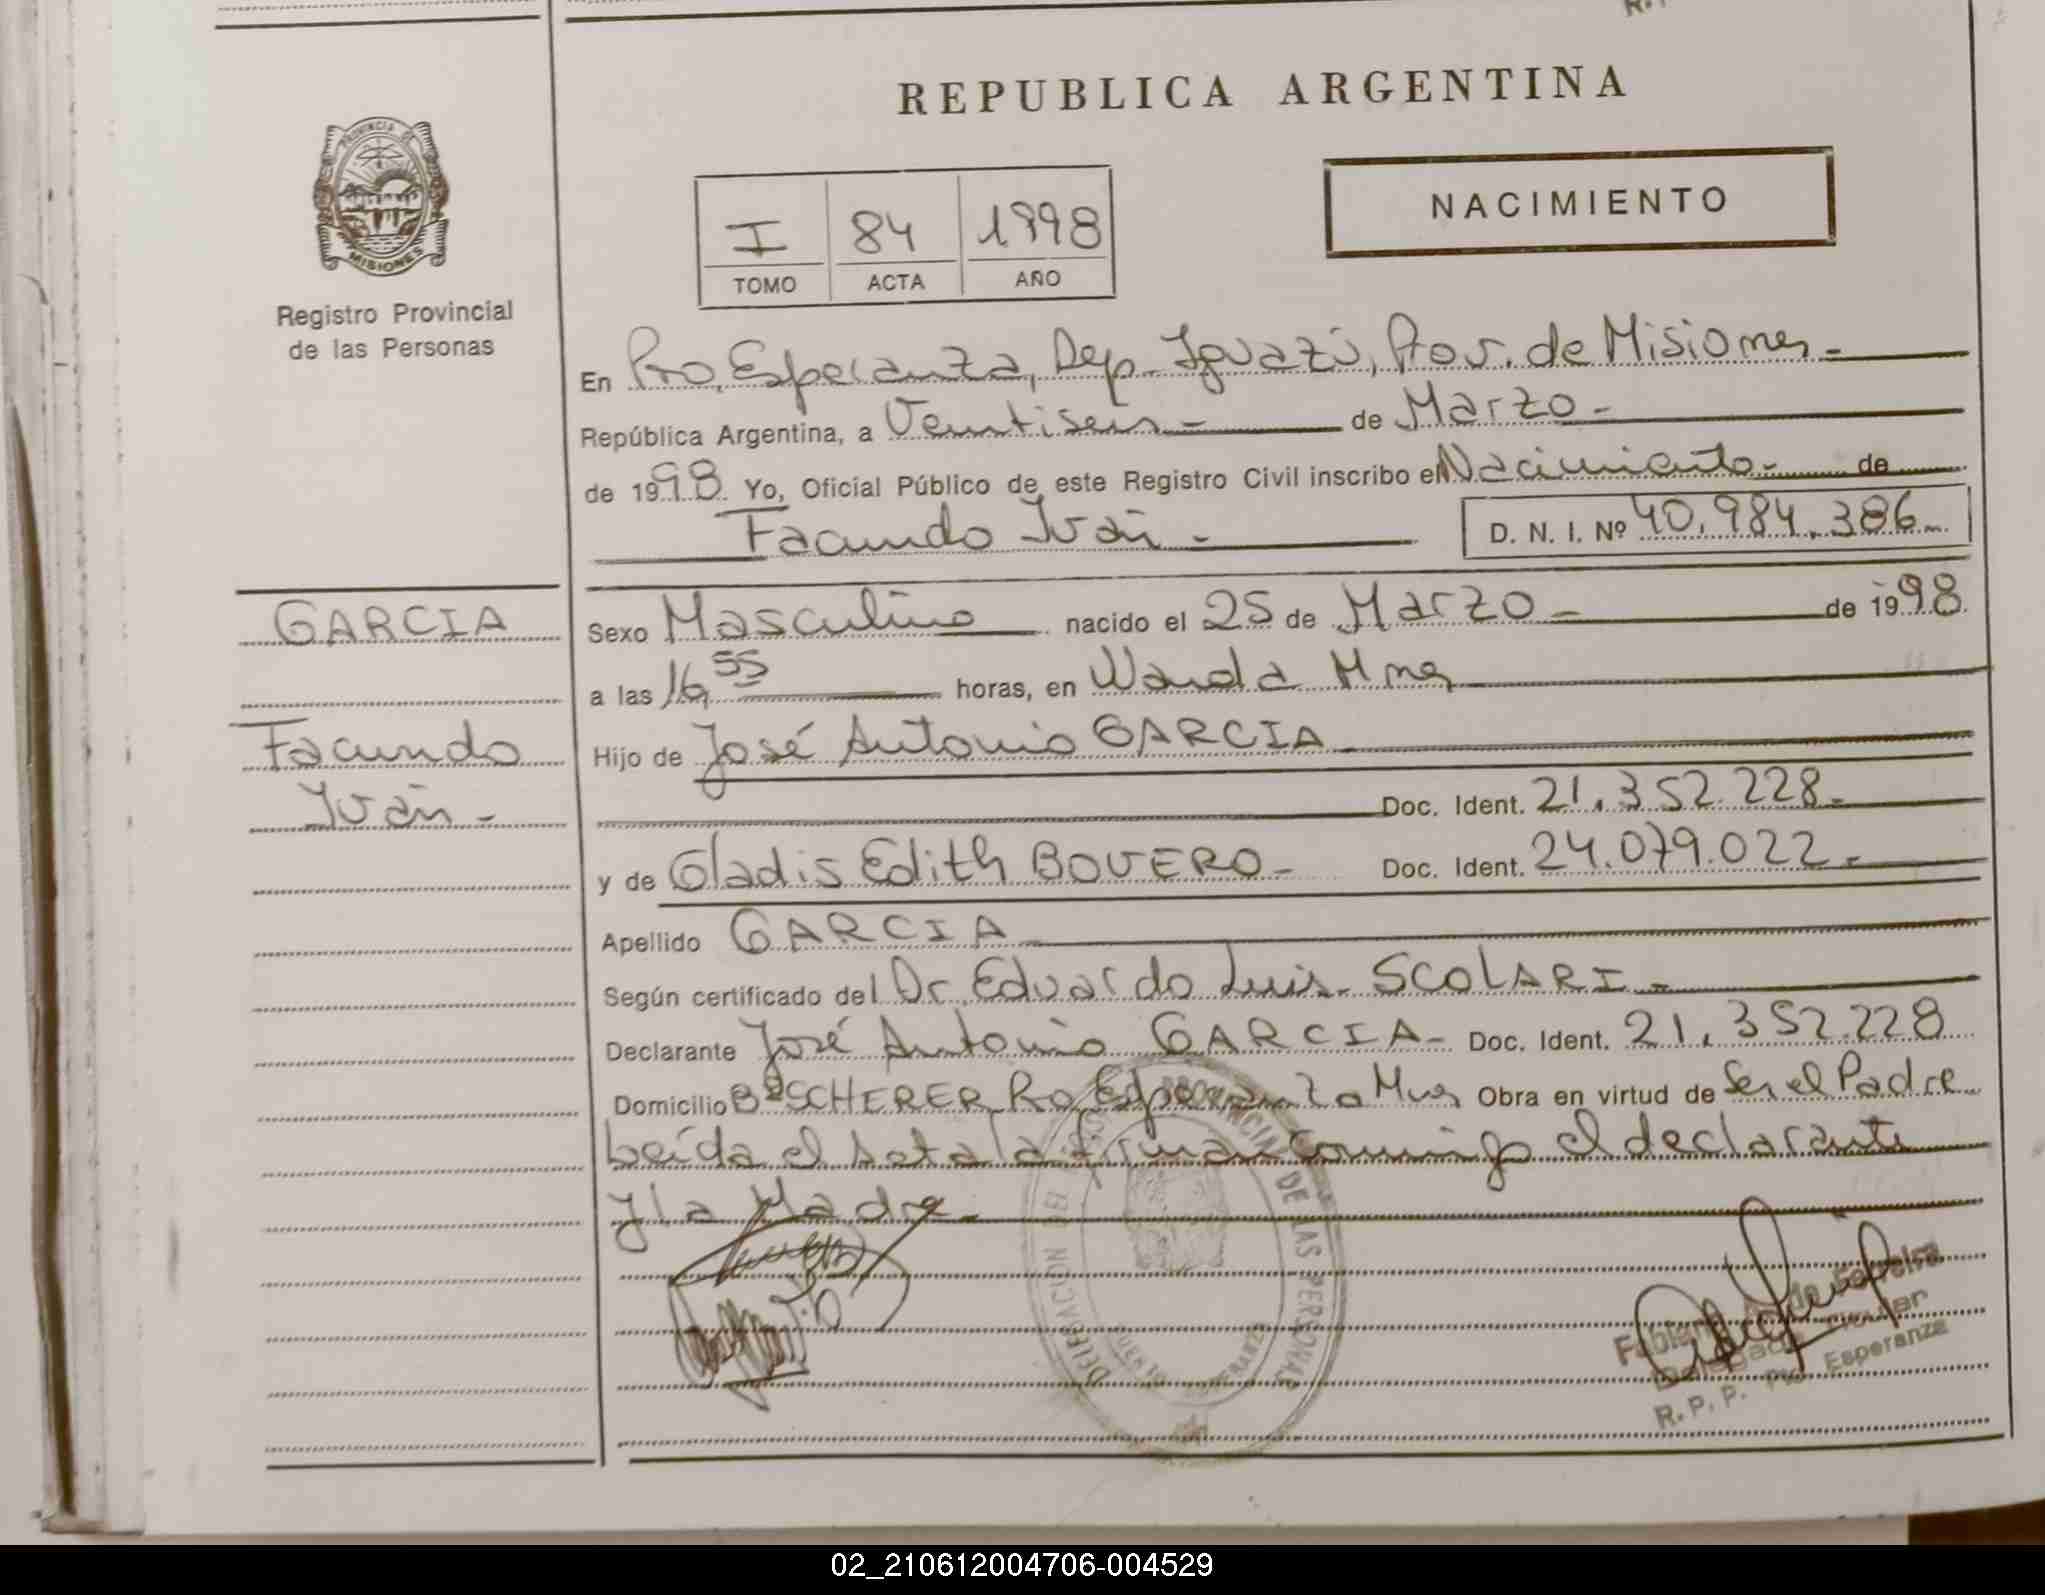 REPUBLICA ARGENTINA
PROVINCIA DE
MISIONES
Registro Provincial
de las Personas
I 84 1998
TOMO ACTA AÑO
NACIMIENTO
En Pto. Esperanza, Dep. Iguazú, Prov. de Misiones -
República Argentina, a Veintiseis - de Marzo -
de 1998 Yo, Oficial Público de este Registro Civil inscribo el Nacimiento - de
Facundo Iván - D. N. I. Nº 40.984.386
GARCIA
Facundo
Iván -
Sexo Masculino nacido el 25 de Marzo - de 1998
a las 16,55 horas, en Wanda Mnes
Hijo de José Antonio GARCIA
Doc. Ident. 21.352.228-
y de Gladis Edith BOVERO - Doc. Ident. 24.079.022 -
Apellido GARCIA
Según certificado del Dr. Eduardo Luis - SCOLARI -
Declarante José Antonio GARCIA - Doc. Ident. 21.352.228
Domicilio Bº SCCHERER Pto Esperanza Mnes Obra en virtud de Ser el Padre
Leída el acta la firman conmigo el declarante
y la Madre -
PROVINCIAL DE LAS PERSONAS
DELEGACION
Delegada Titular
R. P. P. Pto Esperanza
02_210612004706-004529